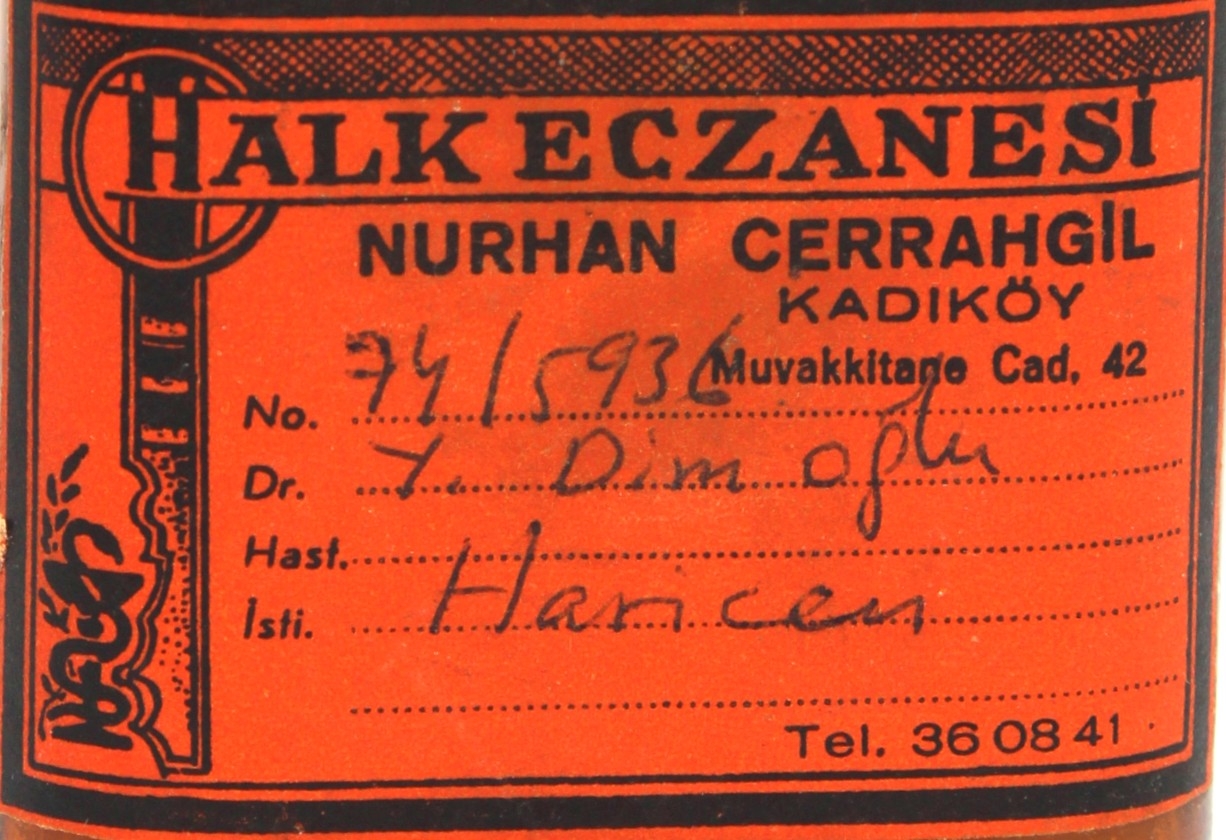 HALK ECZANESİ
NURHAN CERRAHGİL
KADIKÖY
Muvakkitane Cad. 42
No. 74/5936
Dr. Y. Dimoğlu
Hast.
İsti. Haricen
Tel. 36 08 41